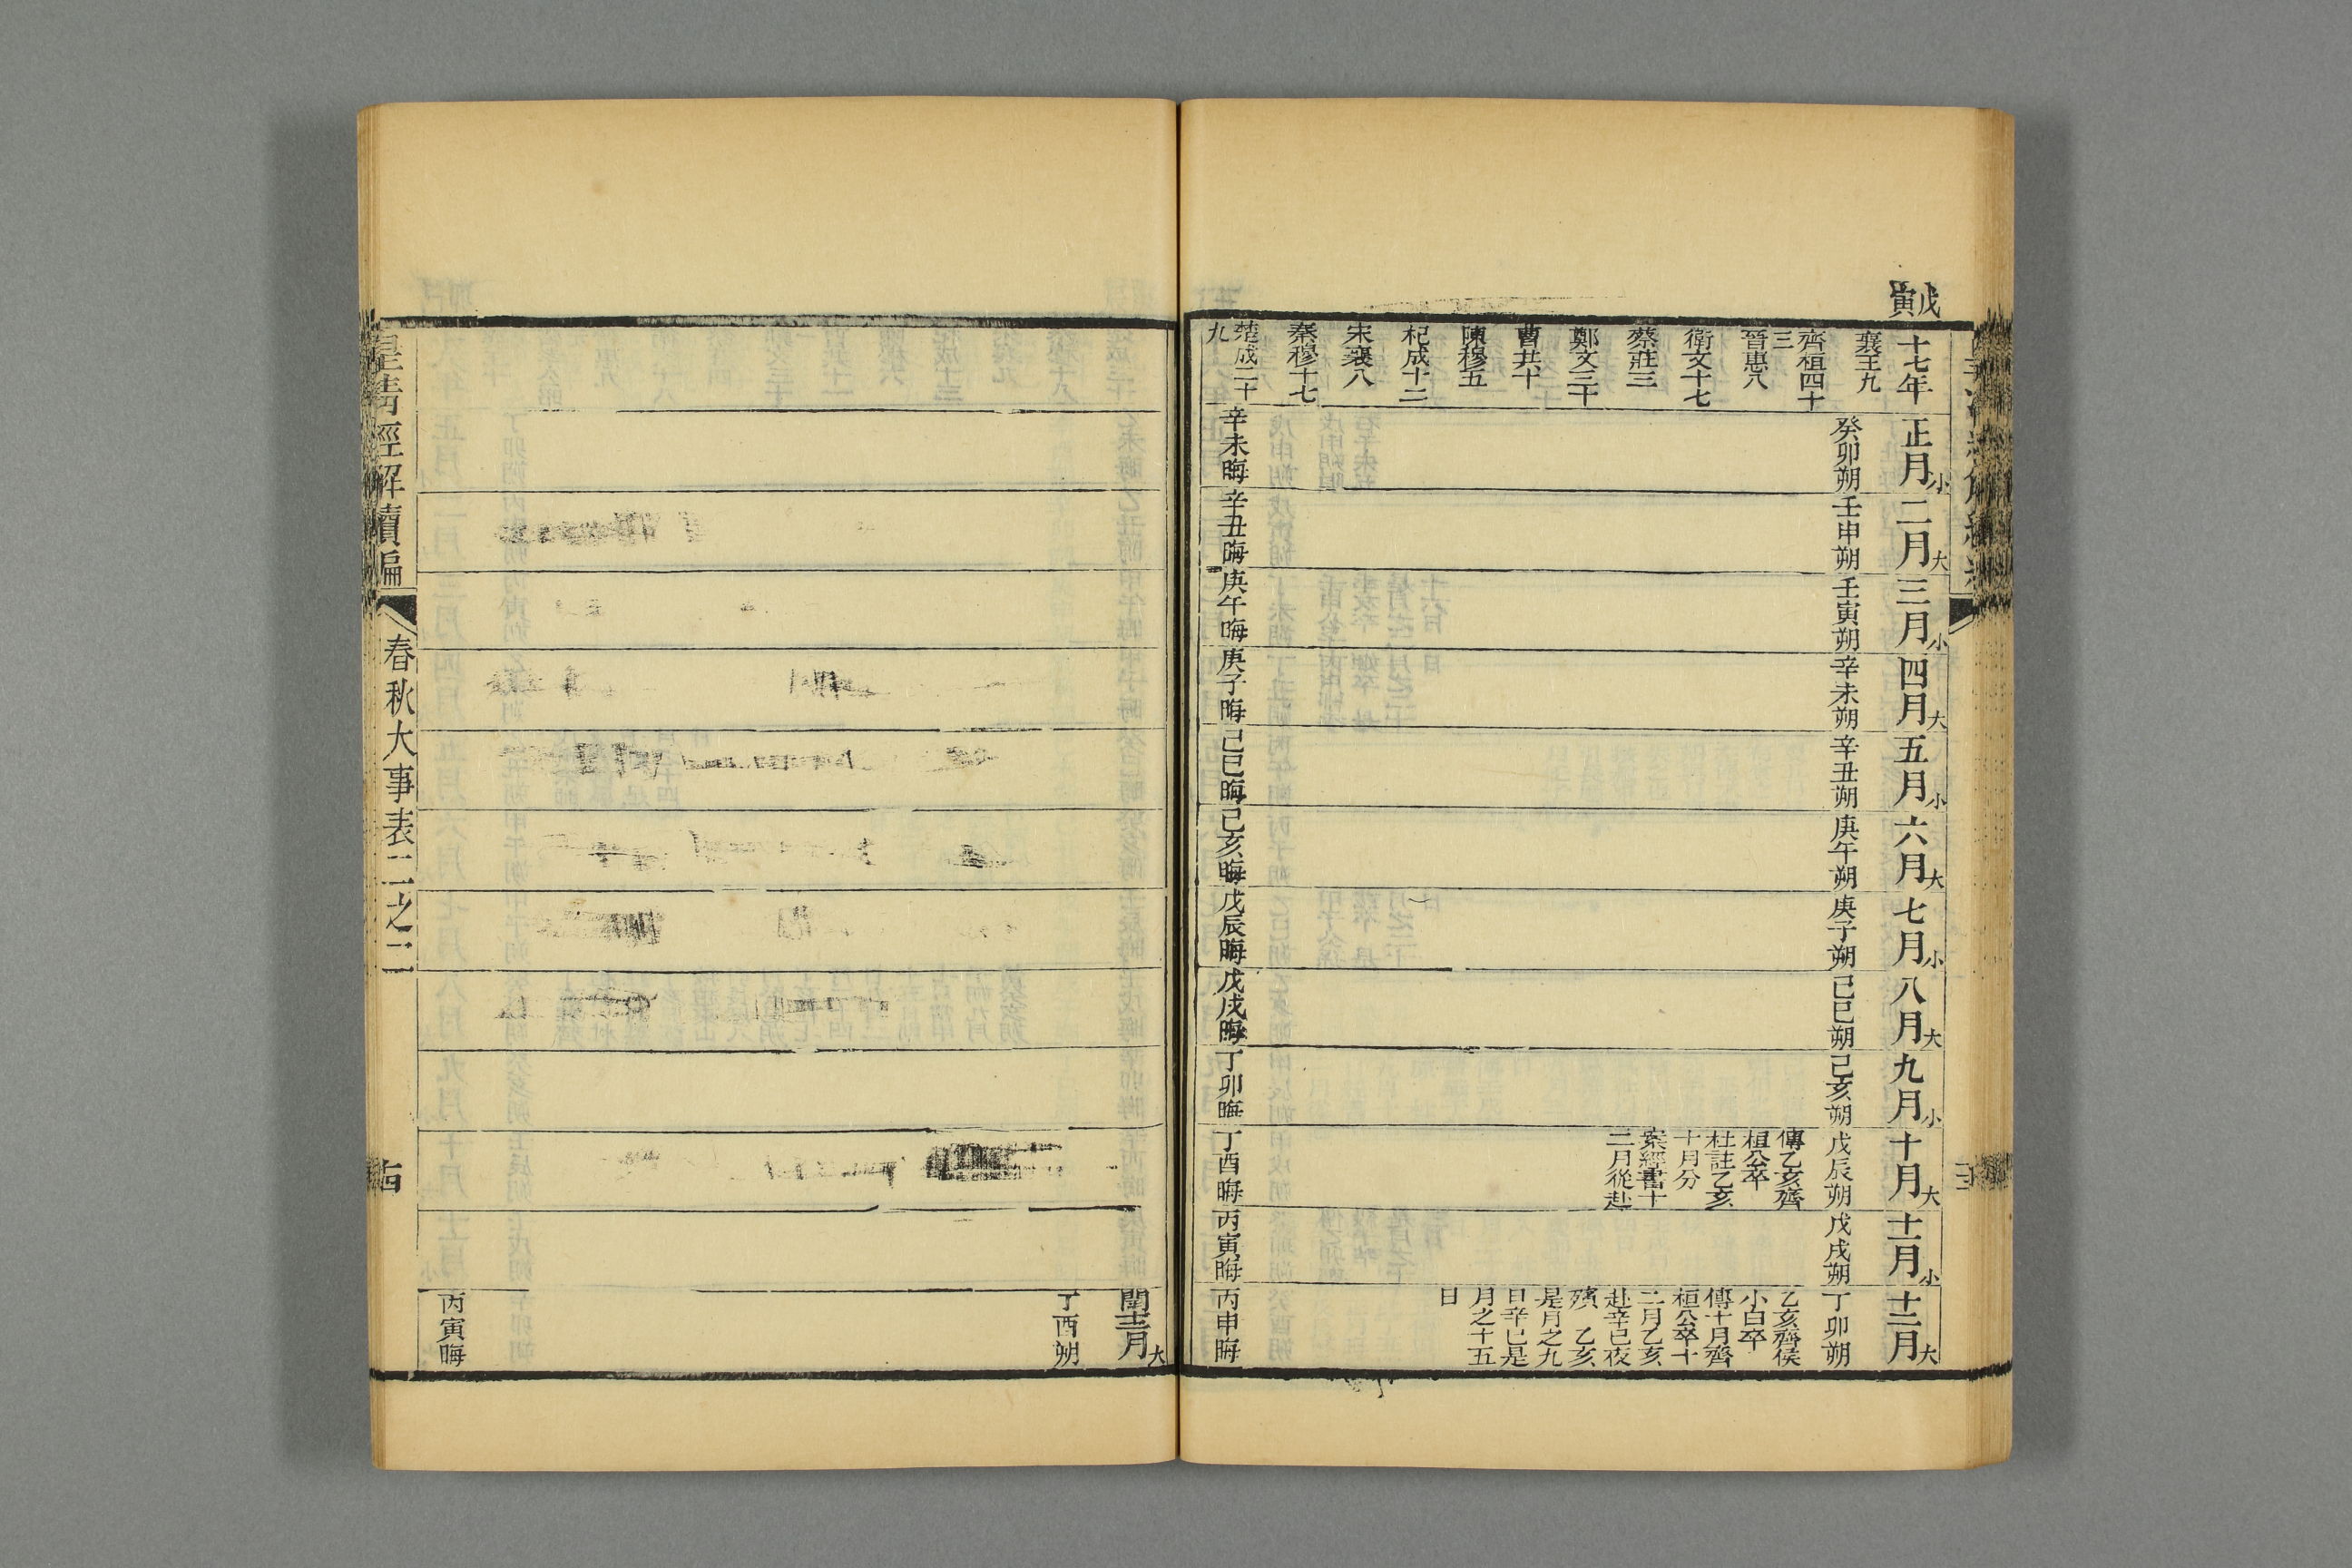 戊寅
十七年
襄王九
齊桓四十三
晉惠八
衛文十七
蔡莊三
鄭文三十
曹共十
陳穆五
杞成十二
宋襄八
秦穆十七
楚成二十九
正月小
癸卯朔
辛未晦
二月大
壬申朔
辛丑晦
三月小
壬寅朔
庚午晦
四月大
辛未朔
庚子晦
五月小
辛丑朔
己巳晦
六月大
庚午朔
己亥晦
七月小
庚子朔
戊辰晦
八月大
己巳朔
戊戌晦
九月小
己亥朔
丁卯晦
十月大
戊辰朔
傳乙亥齊
桓公卒
杜註乙亥
十月分
案經書十
二月從赴
丁酉晦
十一月小
戊戌朔
丙寅晦
十二月大
丁卯朔
乙亥齊侯
小白卒
傳十月齊
桓公卒十
二月乙亥
赴辛巳夜
殯 乙亥
是月之九
日辛巳是
月之十五
日
丙申晦
閏十二月大
丁酉朔
丙寅晦
皇清經解續編
春秋大事表二之二
古